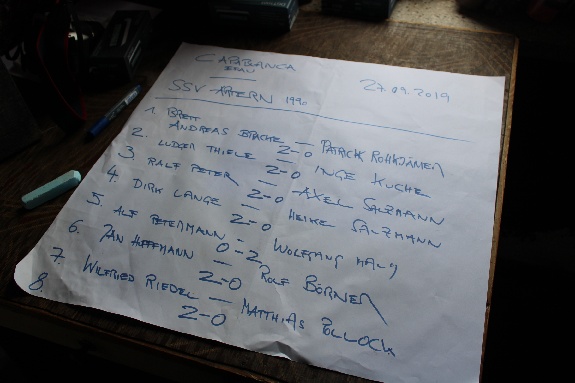 CAPABLANCA
27.09.2019
SSV ARTERN 1990
1. BRETT
ANDREAS BRACHE — PATRICK
2. 2-0
LUDGER THIELE — INGE KUCHE
3. 2-0
RALF PETER — AXEL SALZMANN
4. 2-0
DIRK LANGE — HEIKE SALZMANN
5. 2-0
ALF PETERMANN — WOLFGANG
6. 0-2
JAN HOFFMANN — ROLF BÖRNER
7. 2-0
WILFRIED RIEDEL — MATTHIAS POLLOCK
8. 2-0